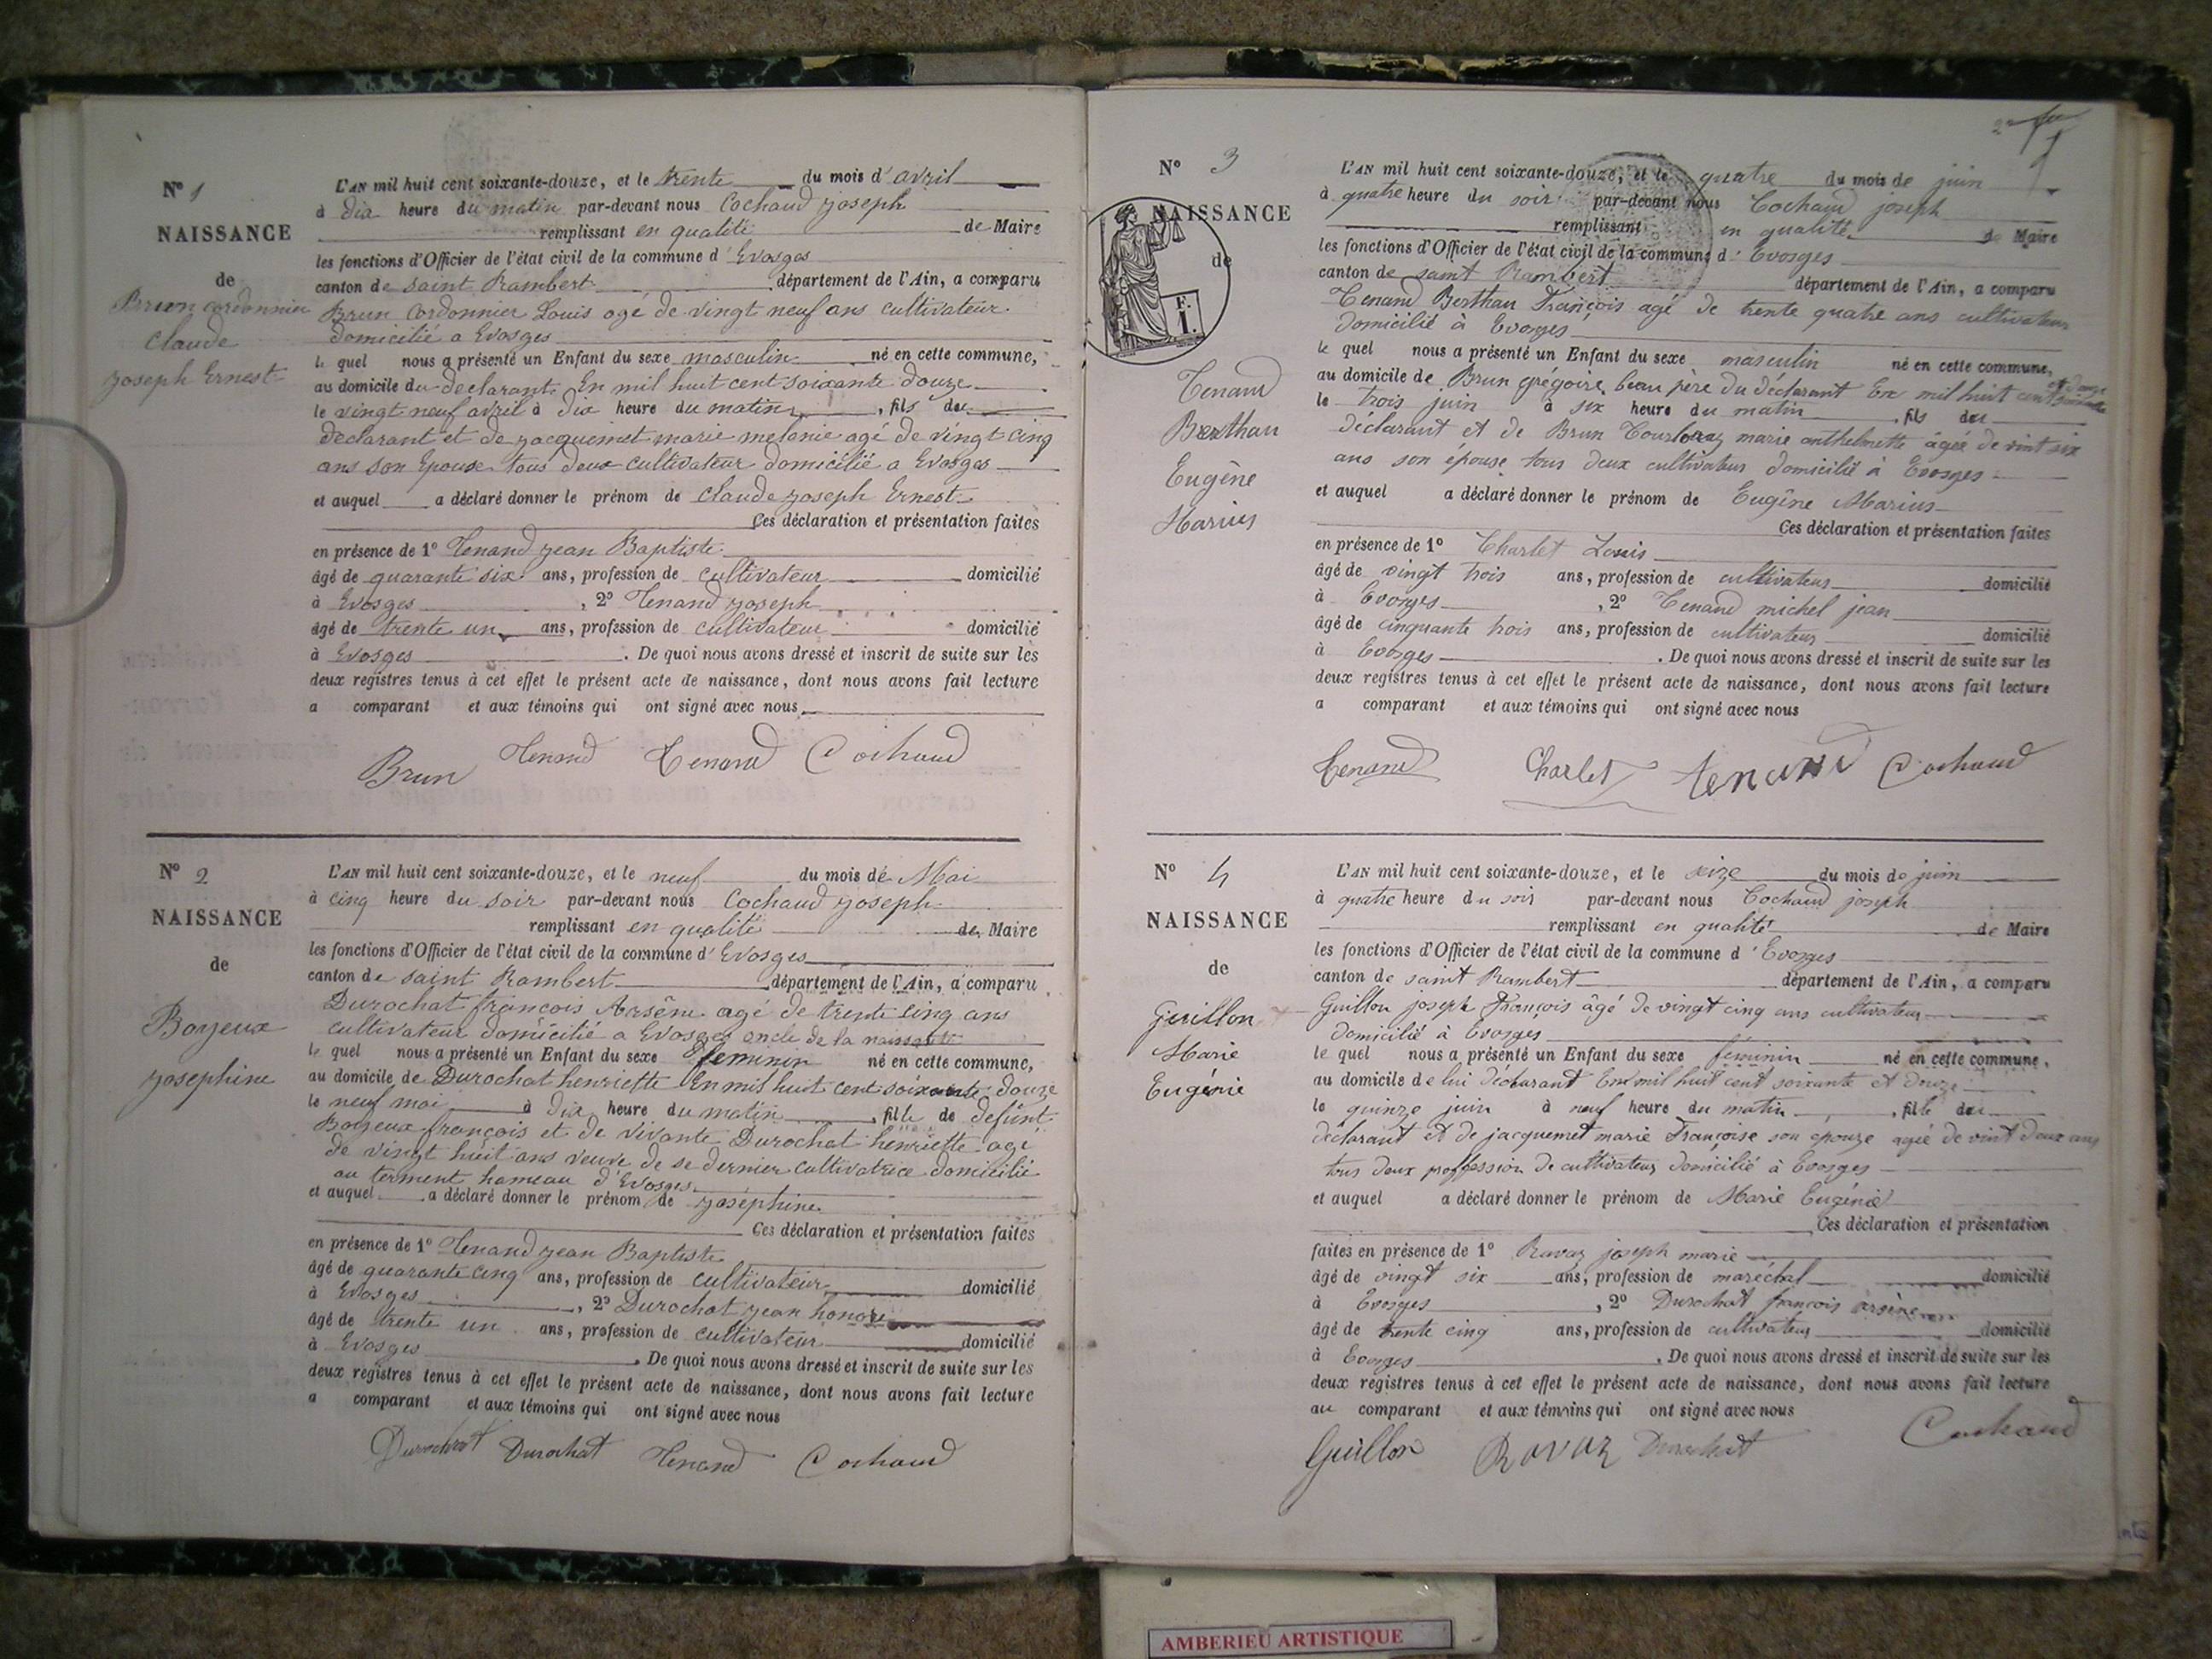 N° 1
NAISSANCE
de
Brun cordonnier
Claude
joseph Ernest
L'AN mil huit cent soixante-douze, et le trente du mois d'avril
à dix heure du matin par-devant nous Cochaud joseph
remplissant en qualité de Maire
les fonctions d'Officier de l'état civil de la commune d'Evosges
canton de saint Rambert département de l'Ain, a comparu
Brun Cordonnier Louis agé de vingt neuf ans cultivateur
domicilié a Evosges
le quel nous a présenté un Enfant du sexe masculin né en cette commune,
au domicile du declarant En mil huit cent soixante douze
le vingt neuf avril à dix heure du matin, fils du
declarant et de jacquemet marie melanie agé de vingt cinq
ans son Epouse tous deux cultivateur domicilié a Evosges
et auquel a déclaré donner le prénom de claude joseph Ernest
Ces déclaration et présentation faites
en présence de 1° Tenand jean Baptiste
âgé de quarante six ans, profession de cultivateur domicilié
à Evosges, 2° Tenand joseph
âgé de trente un ans, profession de cultivateur domicilié
à Evosges. De quoi nous avons dressé et inscrit de suite sur les
deux registres tenus à cet effet le présent acte de naissance, dont nous avons fait lecture
a comparant et aux témoins qui ont signé avec nous
Brun Tenand Tenand Cochaud
N° 2
NAISSANCE
de
Boyeux
josephine
L'AN mil huit cent soixante-douze, et le neuf du mois de Mai
à cinq heure du soir par-devant nous Cochaud joseph
remplissant en qualité de Maire
les fonctions d'Officier de l'état civil de la commune d'Evosges
canton de saint Rambert département de l'Ain, a comparu
Durochat françois Arsène agé de trente cinq ans
cultivateur domicilié a Evosges oncle de la naissante
le quel nous a présenté un Enfant du sexe feminin né en cette commune,
au domicile de Durochat henriette En mil huit cent soixante douze
le neuf mai à dix heure du matin, fille de defunt
Boyeux françois et de vivante Durochat henriette agé
de vingt huit ans veuve de se dernier cultivatrice domicilié
au terment hameau d'Evosges
et auquel a déclaré donner le prénom de josephine
Ces déclaration et présentation faites
en présence de 1° Tenand jean Baptiste
âgé de quarante cinq ans, profession de cultivateur domicilié
à Evosges, 2° Durochat jean honoré
âgé de trente un ans, profession de cultivateur domicilié
à Evosges. De quoi nous avons dressé et inscrit de suite sur les
deux registres tenus à cet effet le présent acte de naissance, dont nous avons fait lecture
a comparant et aux témoins qui ont signé avec nous
Durochat Durochat Tenand Cochaud
N° 3
NAISSANCE
de
F.
1.
Tenand
Berthau
Eugène
Marius
L'AN mil huit cent soixante-douze, et le quatre du mois de juin
à quatre heure du soir par-devant nous Cochaud joseph
remplissant en qualité de Maire
les fonctions d'Officier de l'état civil de la commune d'Evosges
canton de saint Rambert département de l'Ain, a comparu
Tenand Berthau François agé de trente quatre ans cultivateur
domicilié à Evosges
le quel nous a présenté un Enfant du sexe masculin né en cette commune,
au domicile de Brun grégoire beau père du déclarant En mil huit cent soixante et douze
le trois juin à six heure du matin, fils du
déclarant et de Brun marie anthelmette âgée de vint six
ans son épouse tous deux cultivateur domicilié à Evosges
et auquel a déclaré donner le prénom de Eugène Marius
Ces déclaration et présentation faites
en présence de 1° Charlet Louis
âgé de vingt trois ans, profession de cultivateur domicilié
à Evosges, 2° Tenand michel jean
âgé de cinquante trois ans, profession de cultivateur domicilié
à Evosges. De quoi nous avons dressé et inscrit de suite sur les
deux registres tenus à cet effet le présent acte de naissance, dont nous avons fait lecture
a comparant et aux témoins qui ont signé avec nous
Tenand Charlet tenand Cochaud
N° 4
NAISSANCE
de
Guillon
Marie
Eugénie
L'AN mil huit cent soixante-douze, et le seize du mois de juin
à quatre heure du soir par-devant nous Cochaud joseph
remplissant en qualité de Maire
les fonctions d'Officier de l'état civil de la commune d'Evosges
canton de saint Rambert département de l'Ain, a comparu
Guillon joseph François âgé de vingt cinq ans cultivateur
domicilié à Evosges
le quel nous a présenté un Enfant du sexe féminin né en cette commune,
au domicile de lui déclarant En mil huit cent soixante et douze
le quinze juin à neuf heure du matin, fille du
déclarant et de jacquemet marie Françoise son épouze agée de vint deux ans
tous deux proffession de cultivateur domicilié à Evosges
et auquel a déclaré donner le prénom de Marie Eugénie
Ces déclaration et présentation
faites en présence de 1° Ravaz joseph marie
âgé de vingt six ans, profession de maréchal domicilié
à Evosges, 2° Durochat françois arsène
âgé de trente cinq ans, profession de cultivateur domicilié
à Evosges. De quoi nous avons dressé et inscrit de suite sur les
deux registres tenus à cet effet le présent acte de naissance, dont nous avons fait lecture
au comparant et aux témoins qui ont signé avec nous
Guillon Ravaz Durochat Cochaud
AMBERIEU ARTISTIQUE